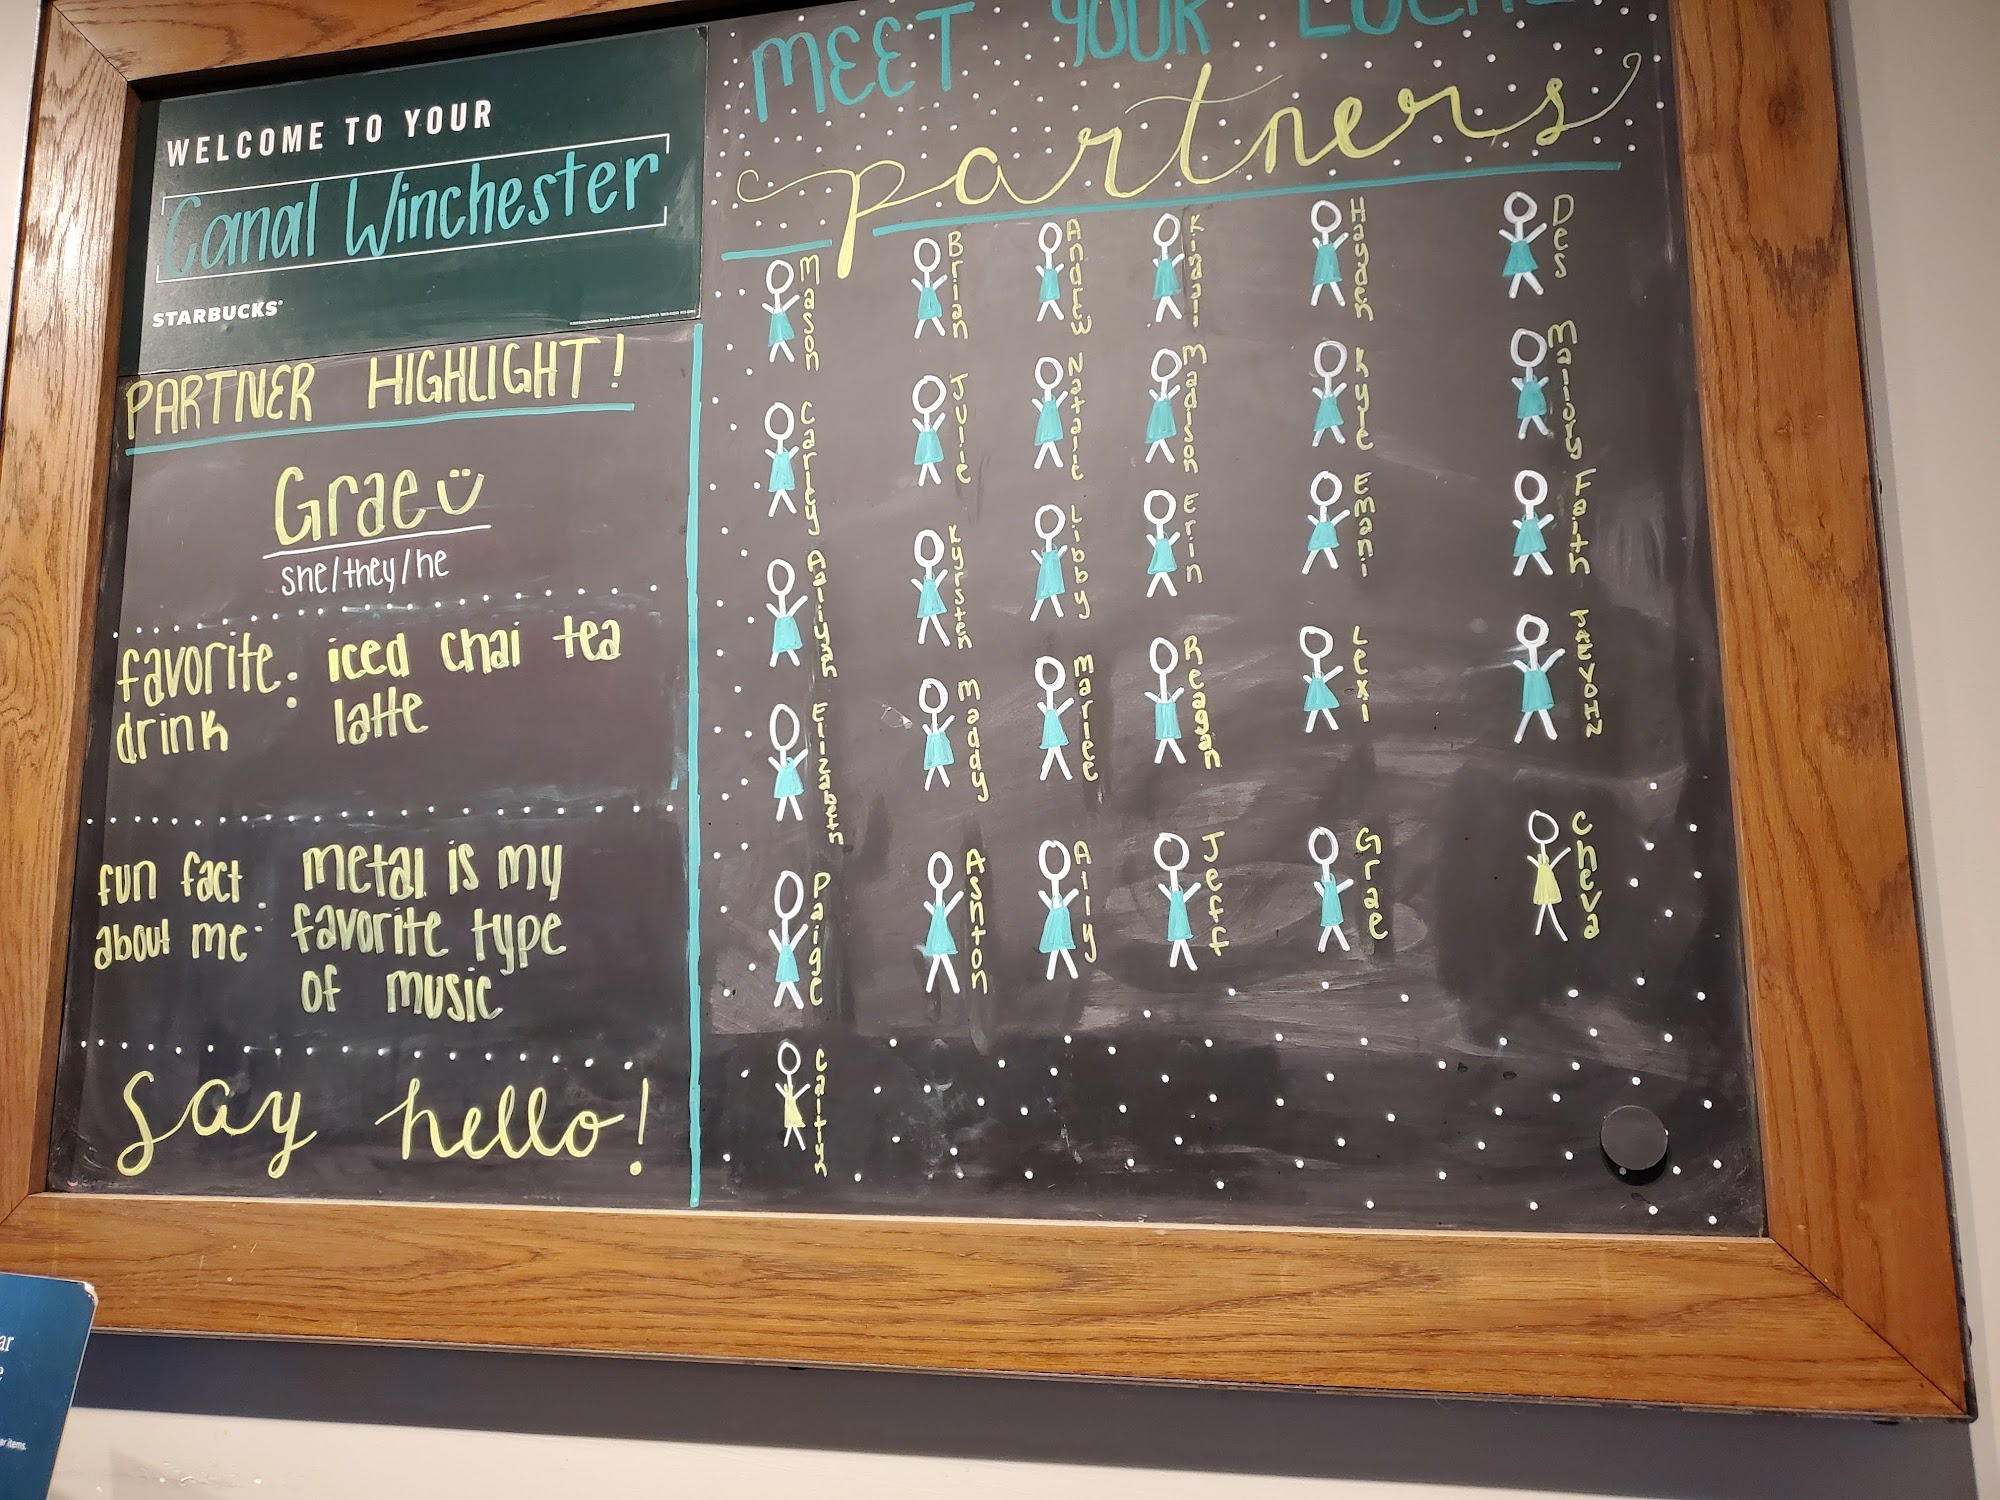 WELCOME TO YOUR
Canal Winchester
STARBUCKS
PARTNER HIGHLIGHT!
Grae
she/they/he
favorite drink: iced chai tea
latte
fun fact about me: metal is my
favorite type
of music
Say hello!
MEET YOUR LOCAL
partners
Mason
Brian
Andrew
Kisaai
Hayden
Des
Carley
Julie
Natalie
Madison
Kyle
Mallory
Aailiyah
Kyrsten
Libby
Erin
Emani
Faith
Elizabeth
Maddy
Marlee
Reagan
Lexi
JAEVOHN
Paige
Ashton
Ally
Jeff
Grae
Cheva
Caitlyn
ar
ar items.